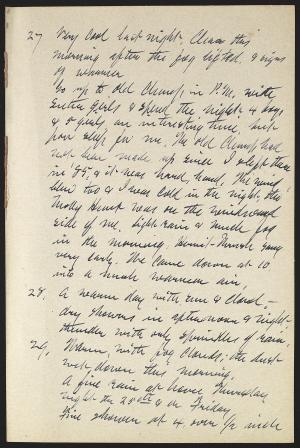 27 Very cool last night. Clear this
morning after the fog lifted, & signs
of warmer
Go up to old Clump in P.M. with
girls & spend the night. 4 boys
& 5 girls an interesting time, but
poor sleep for me. The old Clump had
not been made up since I slept there
in and it was hard, hard. The wind
blew too & I was cold in the night, tho
was on the windward
side of me. Light rain & much fog
in the morning. Hermit-Thrush sang
very early. We came down at 10
into a much warmer air,
28. A warm day with sun & cloud –
any showers in afternoon & night –
thunder with only sprinkles of rain,
29, Warm, with fog clouds; the dust
wet down this morning,
A fine rain at home Thursday
night the 28th & on Friday
Fine shower at 4, over 1/2 inch